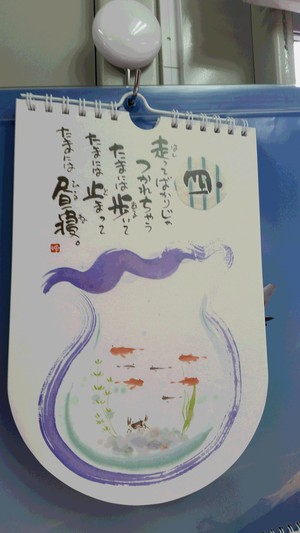 四
走ってばかりじゃ
つかれちゃう
たまには歩いて
たまには止まって
たまには
昼寝。